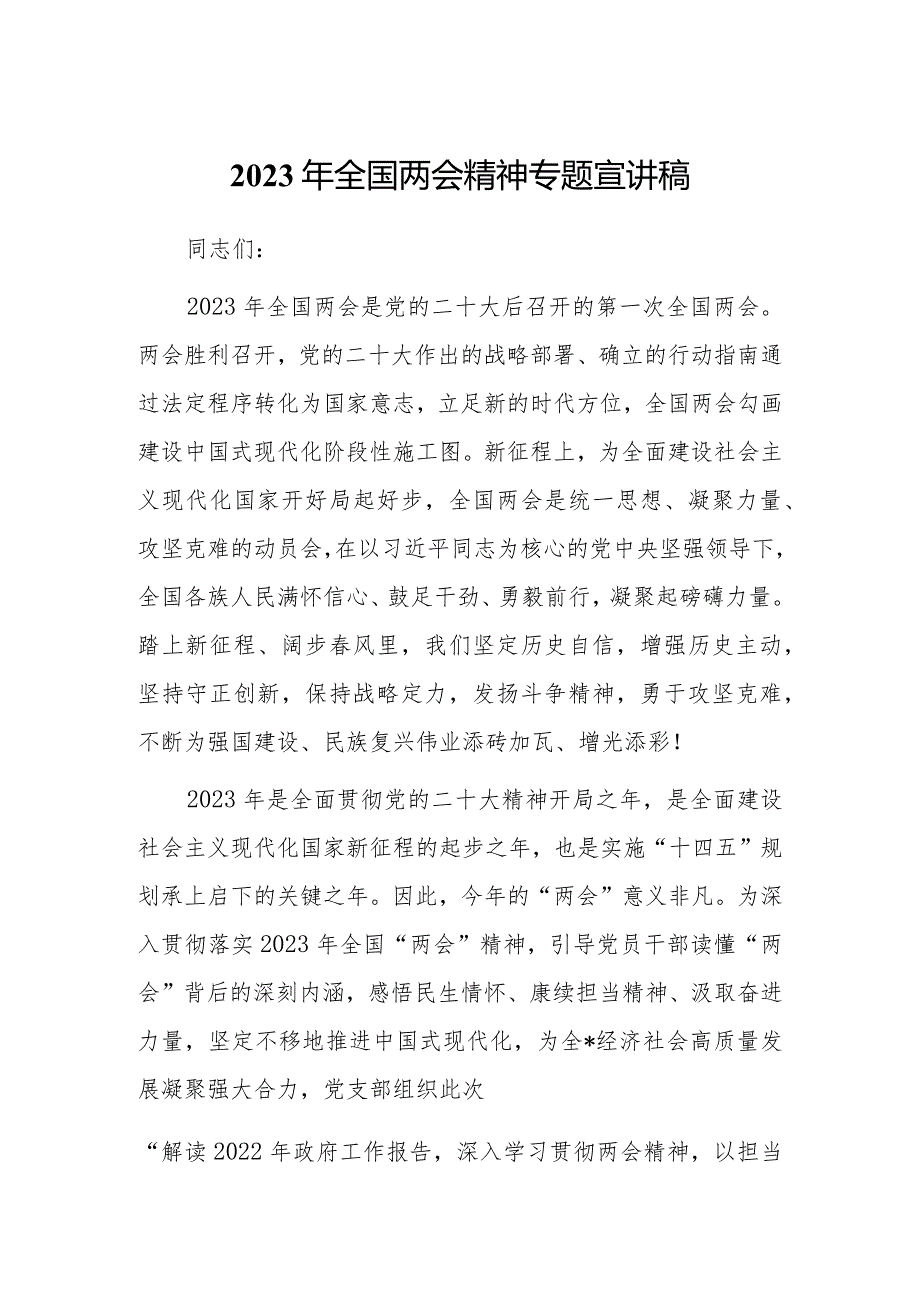 2023年全国两会精神专题宣讲稿
同志们：
2023年全国两会是党的二十大后召开的第一次全国两会。
两会胜利召开，党的二十大作出的战略部署、确立的行动指南通
过法定程序转化为国家意志，立足新的时代方位，全国两会勾画
建设中国式现代化阶段性施工图。新征程上，为全面建设社会主
义现代化国家开好局起好步，全国两会是统一思想、凝聚力量、
攻坚克难的动员会，在以习近平同志为核心的党中央坚强领导下，
全国各族人民满怀信心、鼓足干劲、勇毅前行，凝聚起磅礴力量。
踏上新征程、阔步春风里，我们坚定历史自信，增强历史主动，
坚持守正创新，保持战略定力，发扬斗争精神，勇于攻坚克难，
不断为强国建设、民族复兴伟业添砖加瓦、增光添彩！
2023年是全面贯彻党的二十大精神开局之年，是全面建设
社会主义现代化国家新征程的起步之年，也是实施“十四五”规
划承上启下的关键之年。因此，今年的“两会”意义非凡。为深
入贯彻落实2023年全国“两会”精神，引导党员干部读懂“两
会”背后的深刻内涵，感悟民生情怀、康续担当精神、汲取奋进
力量，坚定不移地推进中国式现代化，为全*经济社会高质量发
展凝聚强大合力，党支部组织此次
“解读2022年政府工作报告，深入学习贯彻两会精神，以担当